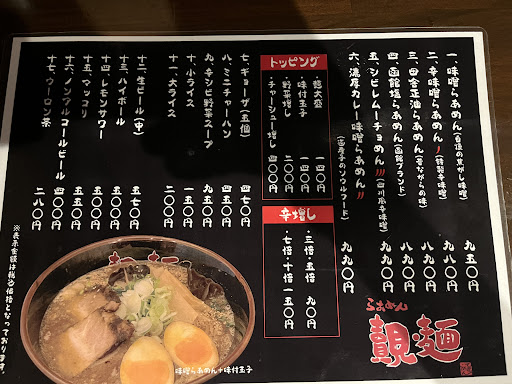 一、味噌らあめん(自慢の焦がし味噌) 九五〇円
二、辛味噌らあめん(特製辛味噌) 九九〇円
三、田舎正油らあめん(昔ながらの味) 八九〇円
四、函館塩らあめん(函館ブランド) 八九〇円
五、シビレムーチョめん(四川風辛味噌) 九九〇円
六、濃厚カレー味噌らあめん(西屋子のソウルフード) 九九〇円
トッピング
・麺大盛 一四〇円
・味付玉子 一四〇円
・野菜増し 二〇〇円
・チャーシュー増し 四〇〇円
辛増し
・三倍・五倍 九〇円
・七倍・十倍 一五〇円
七、ギョーザ(五個) 四七〇円
八、ミニチャーハン 四五〇円
九、辛シビ野菜スープ 九五〇円
十、小ライス 一五〇円
十一、大ライス 二〇〇円
十二、生ビール(中) 五七〇円
十三、ハイボール 五〇〇円
十四、レモンサワー 五〇〇円
十五、マッコリ 五〇〇円
十六、ノンアルコールビール 四〇〇円
十七、ウーロン茶 二八〇円
※表示金額は税込価格となっております。
味噌らあめん+味付玉子
らあめん
麺